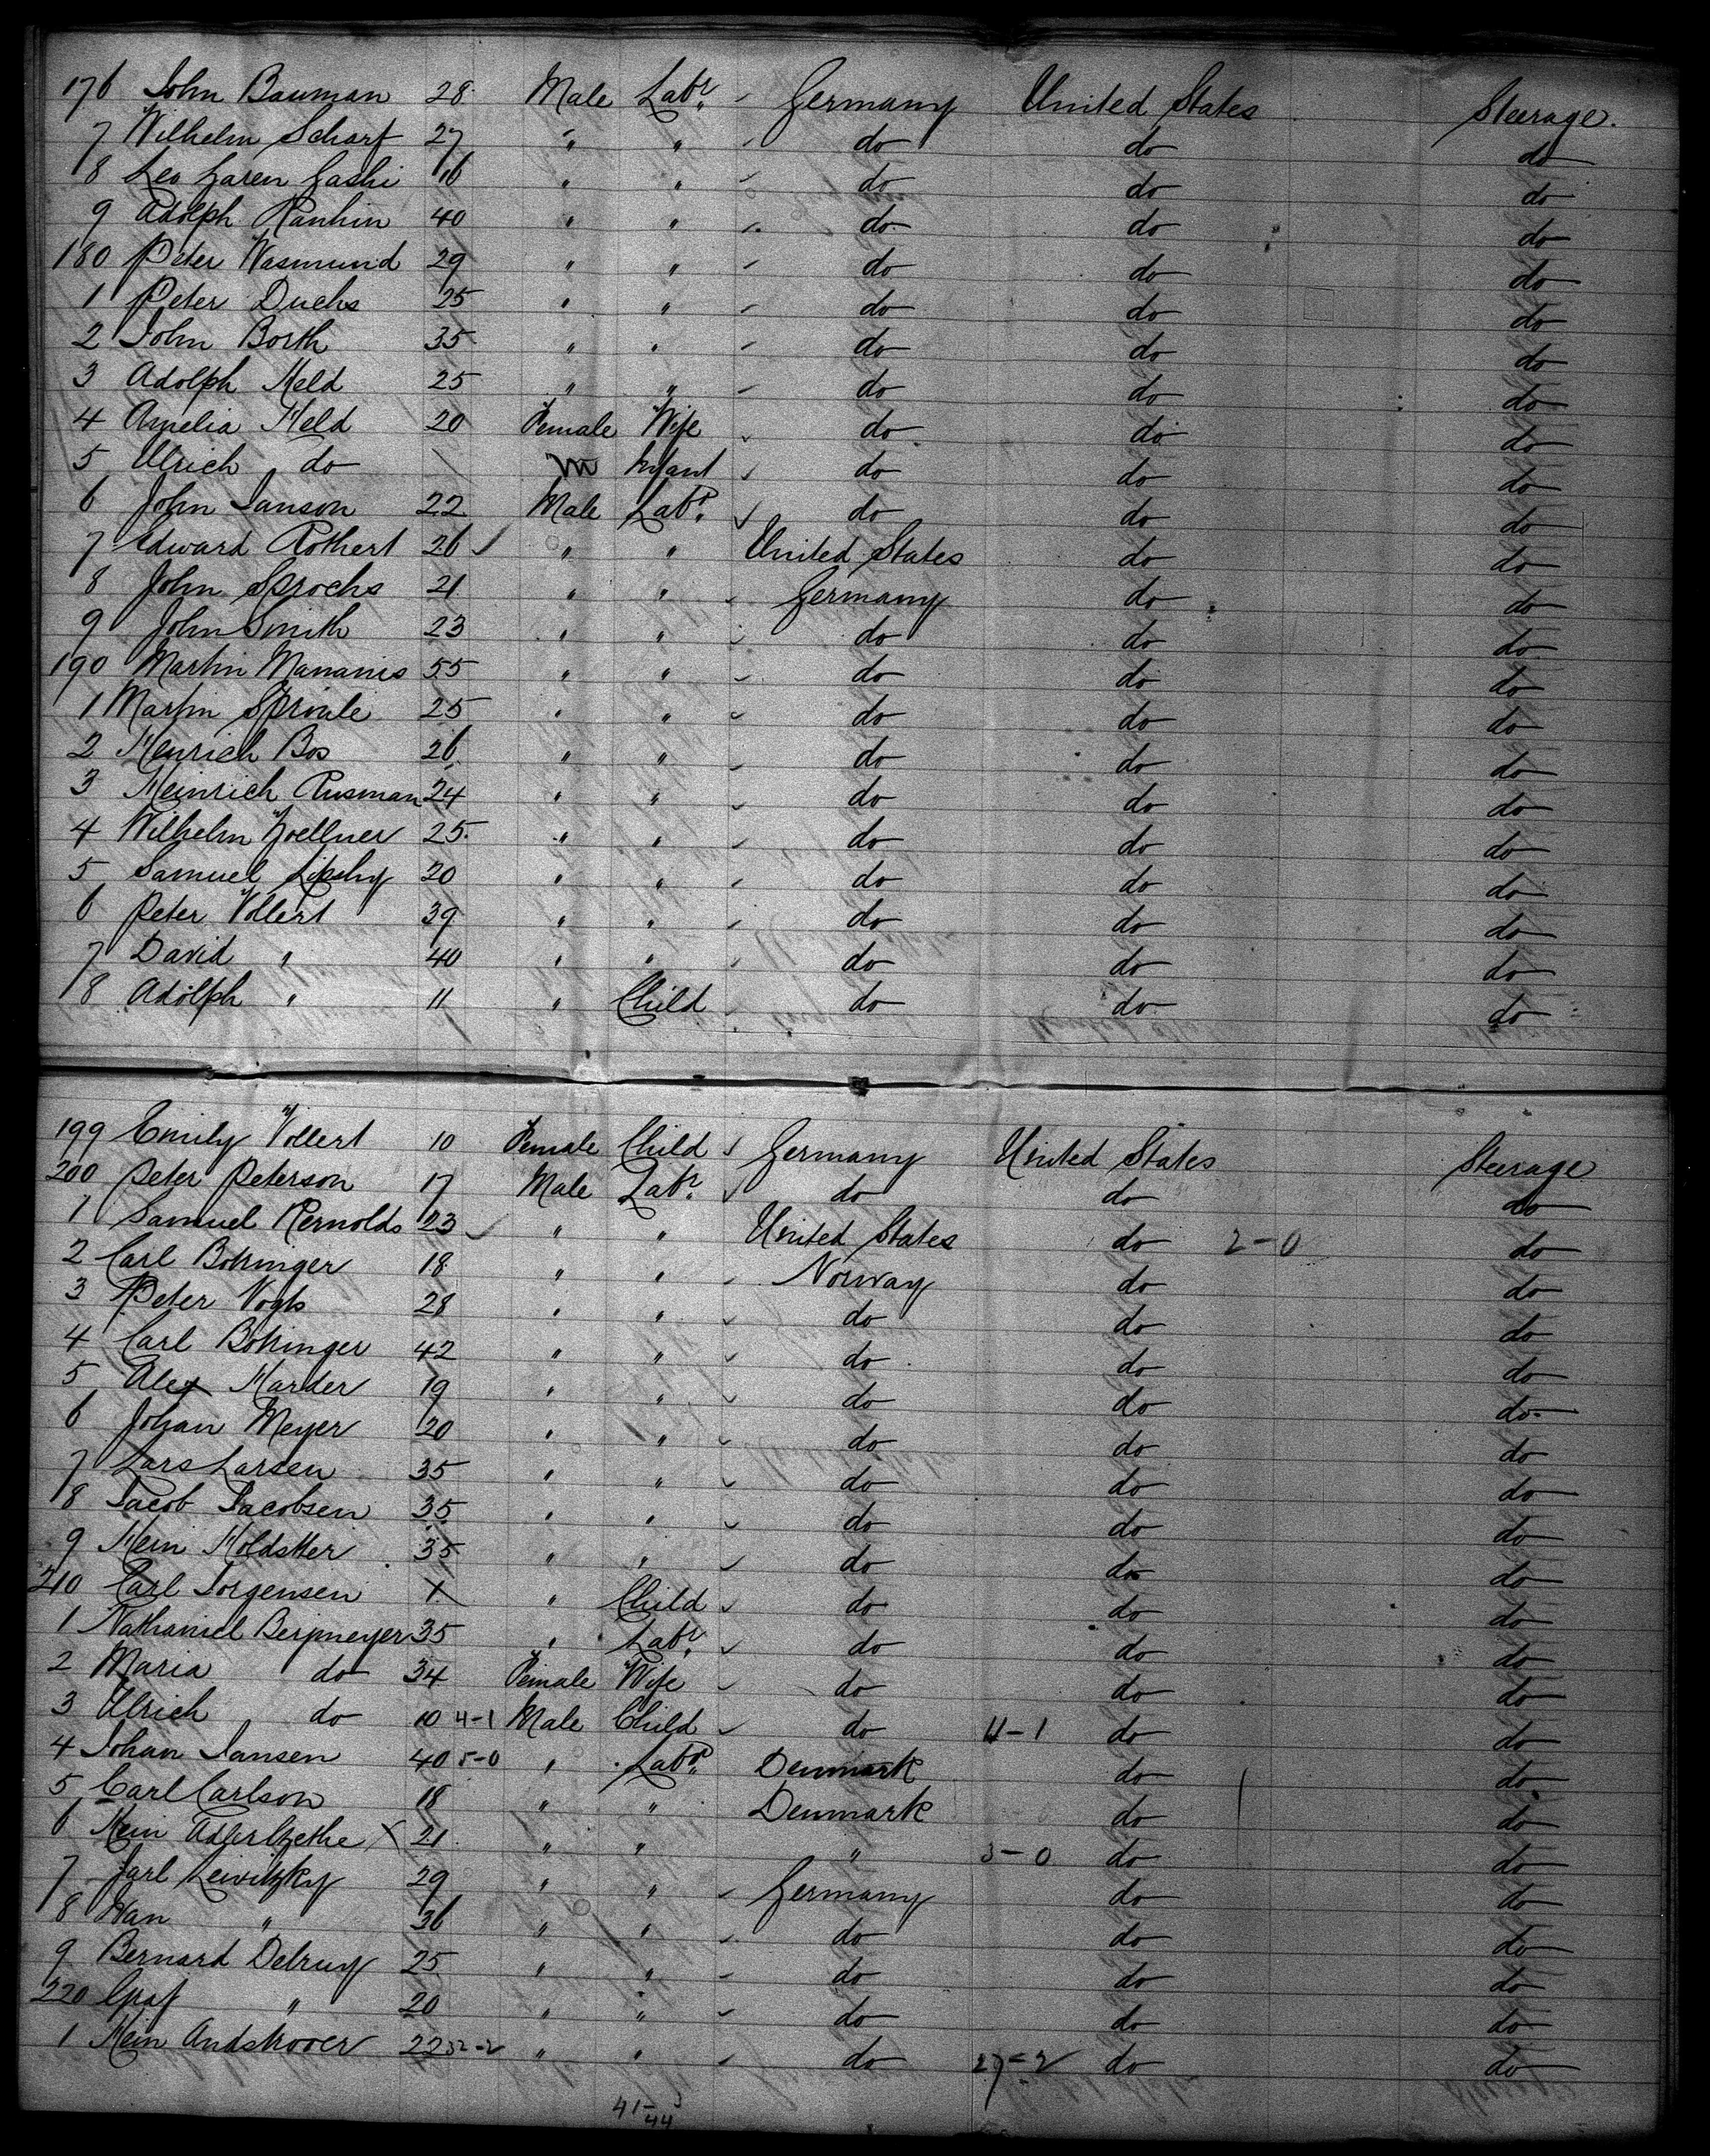 176 John Bauman 28 Male Labr. Germany United States Steerage.
7 Wilhelm Scharf 27 " " do do do
8 Leo Garen Gashi 16 " " do do do
9 Adolph Rankin 40 " " do do do
180 Peter Wasmund 29 " " do do do
1 Peter Duchs 25 " " do do do
2 John Borth 35 " " do do do
3 Adolph Held 25 " " do do do
4 Amelia Held 20 Female Wife do do do
5 Ulrich do \ m Infant do do do
6 John Janson 22 Male Labr. do do do
7 Edward Rothert 26 " " United States do do
8 John Sprochs 21 " " Germany do do
9 John Smith 23 " " do do do
190 Martin Mananis 55 " " do do do
1 Martin 25 " " do do do
2 Henrich Bos 26 " " do do do
3 Heinrich Rusman 24 " " do do do
4 Wilhelm Zoellner 25 " " do do do
5 Samuel Lipshy 20 " " do do do
6 Peter Vollert 39 " " do do do
7 David " 40 " " do do do
8 Adolph " 11 " Child do do do
199 Emily Vollert 10 Female Child Germany United States Steerage
200 Peter Peterson 17 Male Labr. do do do
1 Samuel Rernolds 23 " " United States do 2-0 do
2 Carl Bottringer 18 " " Norway do do
3 Peter Vogts 28 " " do do do
4 Carl Bottringer 42 " " do do do
5 Alex Harder 19 " " do do do
6 Johan Meyer 20 " " do do do
7 Lars Larsen 35 " " do do do
8 Jacob Jacobsen 35 " " do do do
9 Hein Holdstter 35 " " do do do
210 Carl Jorgensen 1 " Child do do do
1 Nathaniel Berpmeyer 35 " Labr. do do do
2 Maria do 34 Female Wife do do do
3 Ulrich do 10 4-1 Male Child do 4-1 do do
4 Johan Jansen 40 5-0 " Labr. Denmark do do
5 Carl Carlson 18 " " Denmark do do
6 Hein 21 " " " 3-0 do do
7 Jarl Lewitzky 29 " " Germany do do
8 Wan " 36 " " do do do
9 Bernard Delruy 25 " " do do do
220 " 20 " " do do do
1 Hein Andstrover 22 32-2 " " do 27-2 do do
41-3
44